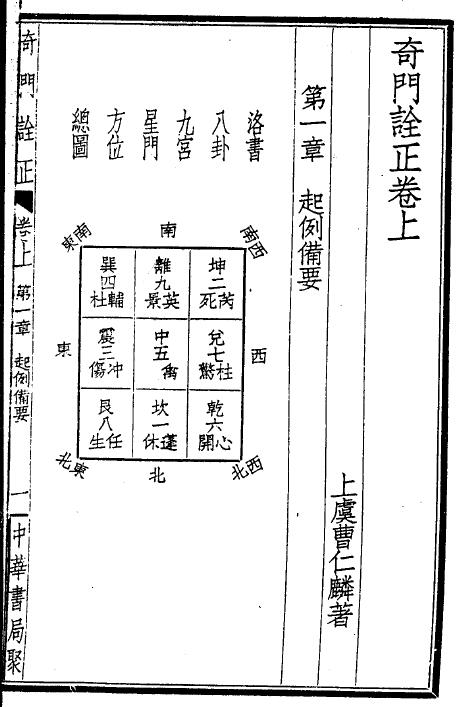 奇門詮正卷上
上虞曹仁麟著
第一章 起例備要
洛書
八卦
九宮
星門
方位
總圖
南西
南
東南
坤二芮死
離九英景
巽四輔杜
西
兌七柱驚
中五禽
震三冲傷
東
乾六心開
坎一蓬休
艮八任生
北西
北
北東
奇門詮正 卷上 第一章 起例備要 一 中華書局聚